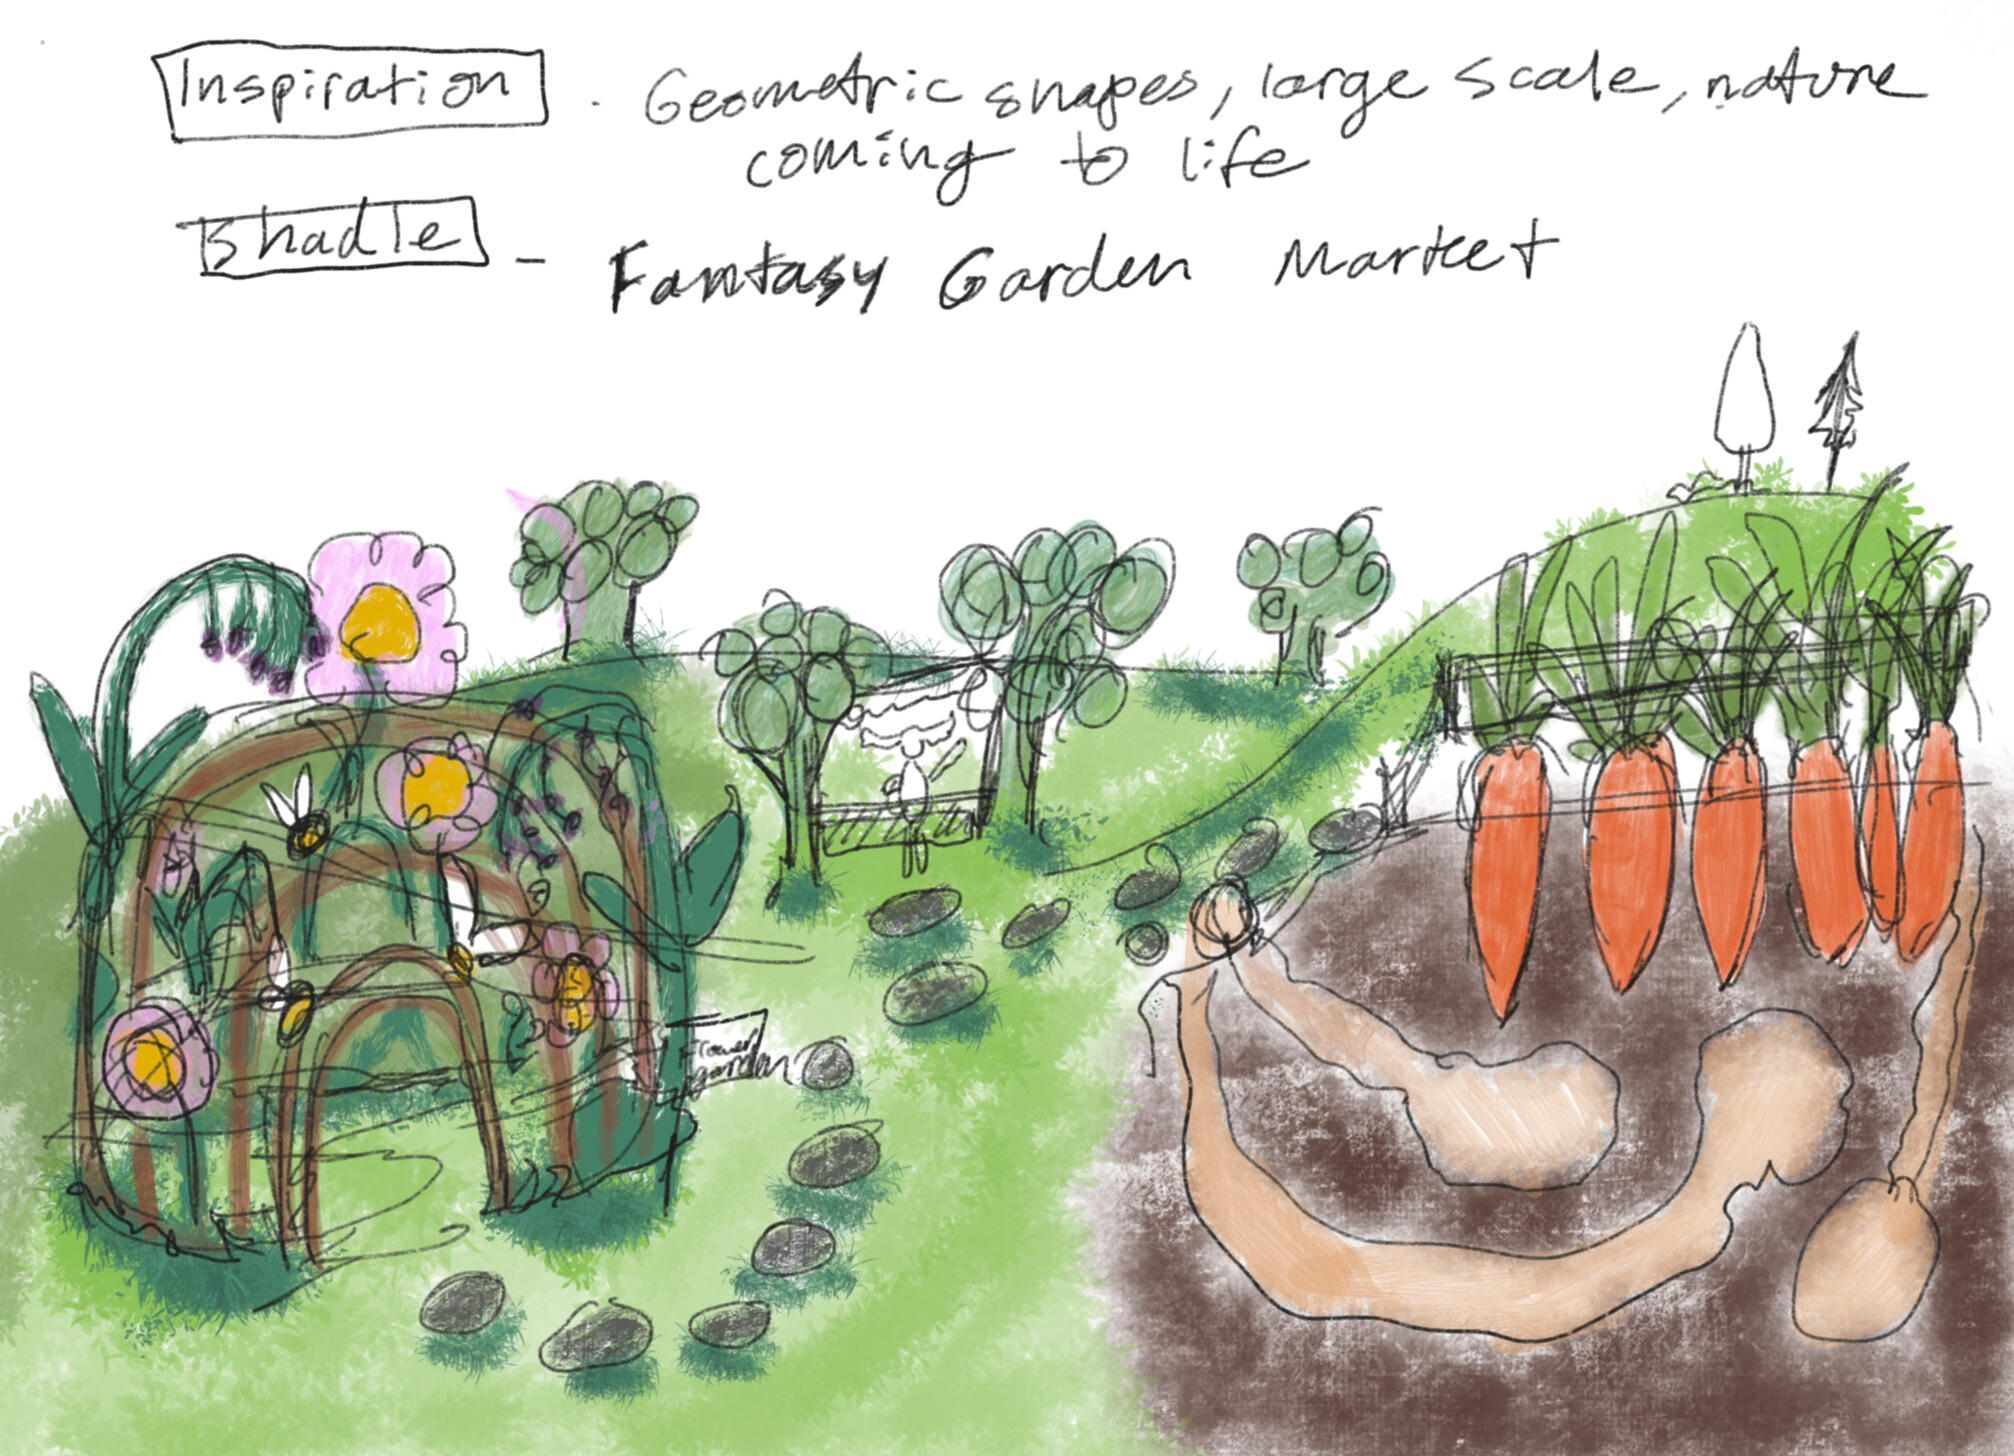 Inspiration - Geometric shapes, large scale, nature
coming to life
Bhadle - Fantasy Garden Market
Flower
garden